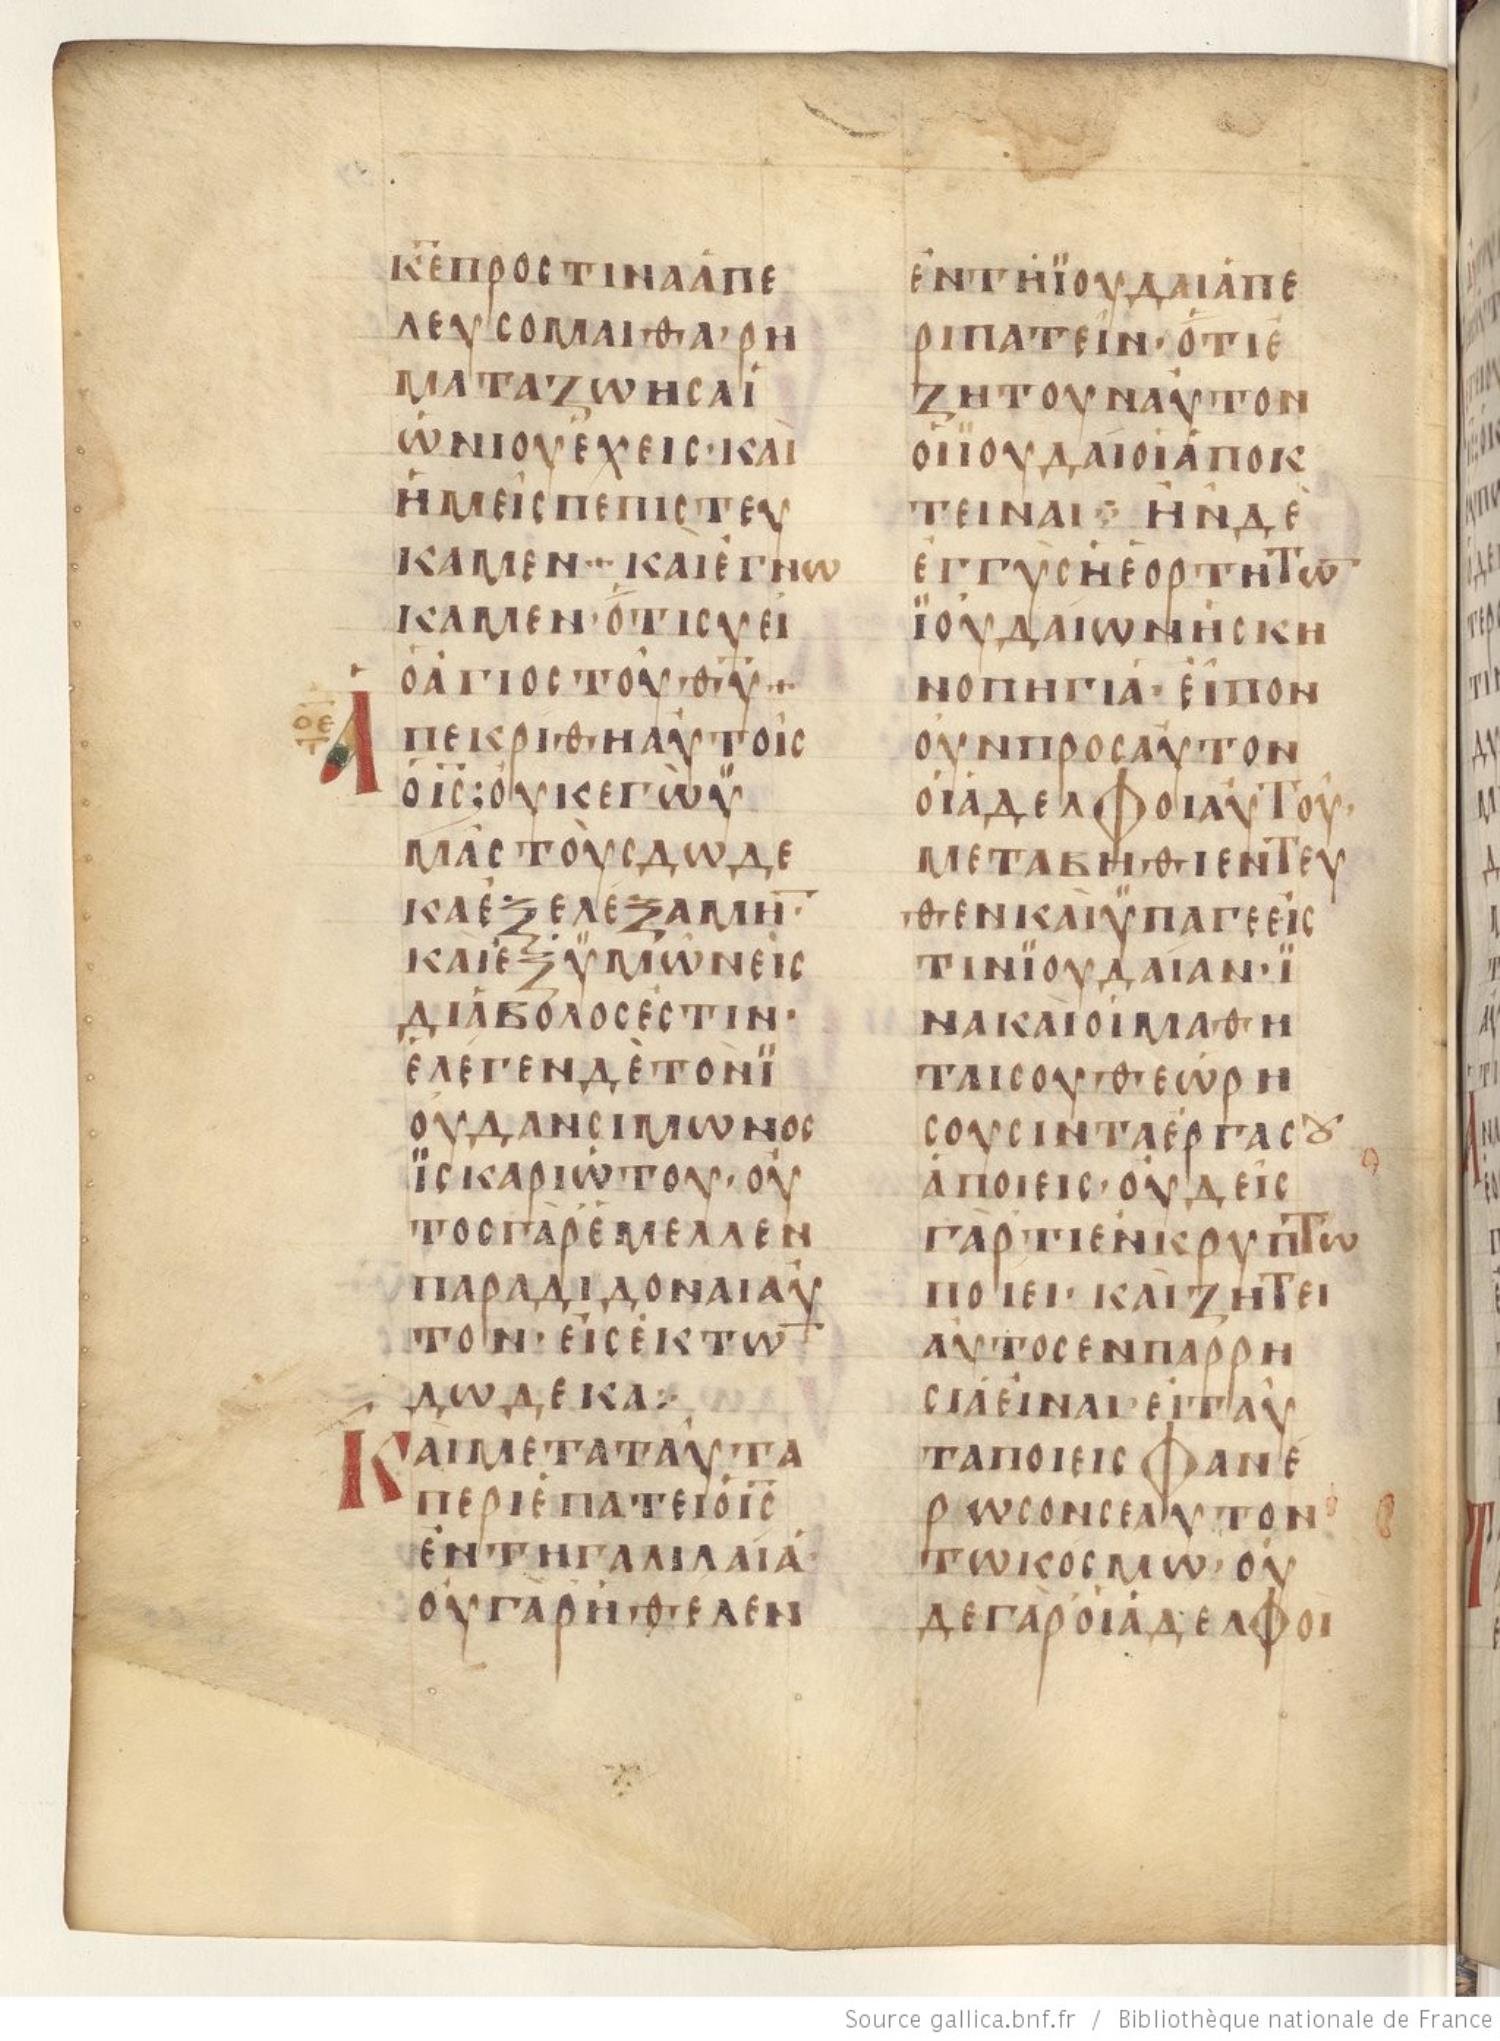 κ̅ε̅ προστινα ἀπε
λευσομαι θα· ρη
ματα ζωησ αἰ
ὠνιου ἐχεισ· και
ἡμεισ πεπιστευ
καμεν·· και ἐγνω
καμεν· ὁτι συ εἰ
ὁ ἁγιοσ του θ̅υ̅··
Ἀ
πεκριθη αὐτοισ
ο̅ε̅
ὁ ι̅σ̅: οὐκ εγω ὑ̈
μασ τουσ δωδε
κα ἐξελεξαμη̅·
και ἐξ ὑ̈μων εἱσ
διαβολοσ ἐστιν·
ἐλεγεν δε τον ϊ
ουδαν σιμωνοσ
ϊσκαριωτου· οὑ
τοσ γαρ ἐμελλεν
παραδιδοναι αὐ
τον· εἱσ ἐκ τω̅
δωδεκα:
Και μετα ταυτα
περιεπατει ὁ ι̅σ̅
ἐν τη γαλιλαια·
οὐ γαρ ἠθελεν
ἐν τη ϊουδαια πε
ριπατειν· ὁτι ἐ
ζητουν αὐτον
οἱ ϊουδαιοι ἀποκ
τειναι: ἠν δε
ἐγγυσ ἡ ἑορτη τω̅
ϊουδαιων ἡ σκη
νοπηγια· εἰπον
οὐν προσ αὐτον
οἱ ἀδελφοι αὐτου·
μεταβηθι εντευ
θεν και ὑ̈παγε εἰσ
τιν ϊουδαιαν· ϊ
να και οἱ μαθη
ται σου θεωρη
σουσιν τα ἐργα σȣ
ἁ ποιεισ· οὐδεισ
γαρ τι ἐν κρυπτω
ποιει· και ζητει
αὐτοσ εν παρρη
σια εἰναι· εἰ ταυ
τα ποιεισ φανε
ρωσον σεαυτον
τω κοσμω· οὐ
δε γαρ οἱ ἀδελφοι
Source gallica.bnf.fr / Bibliothèque nationale de France